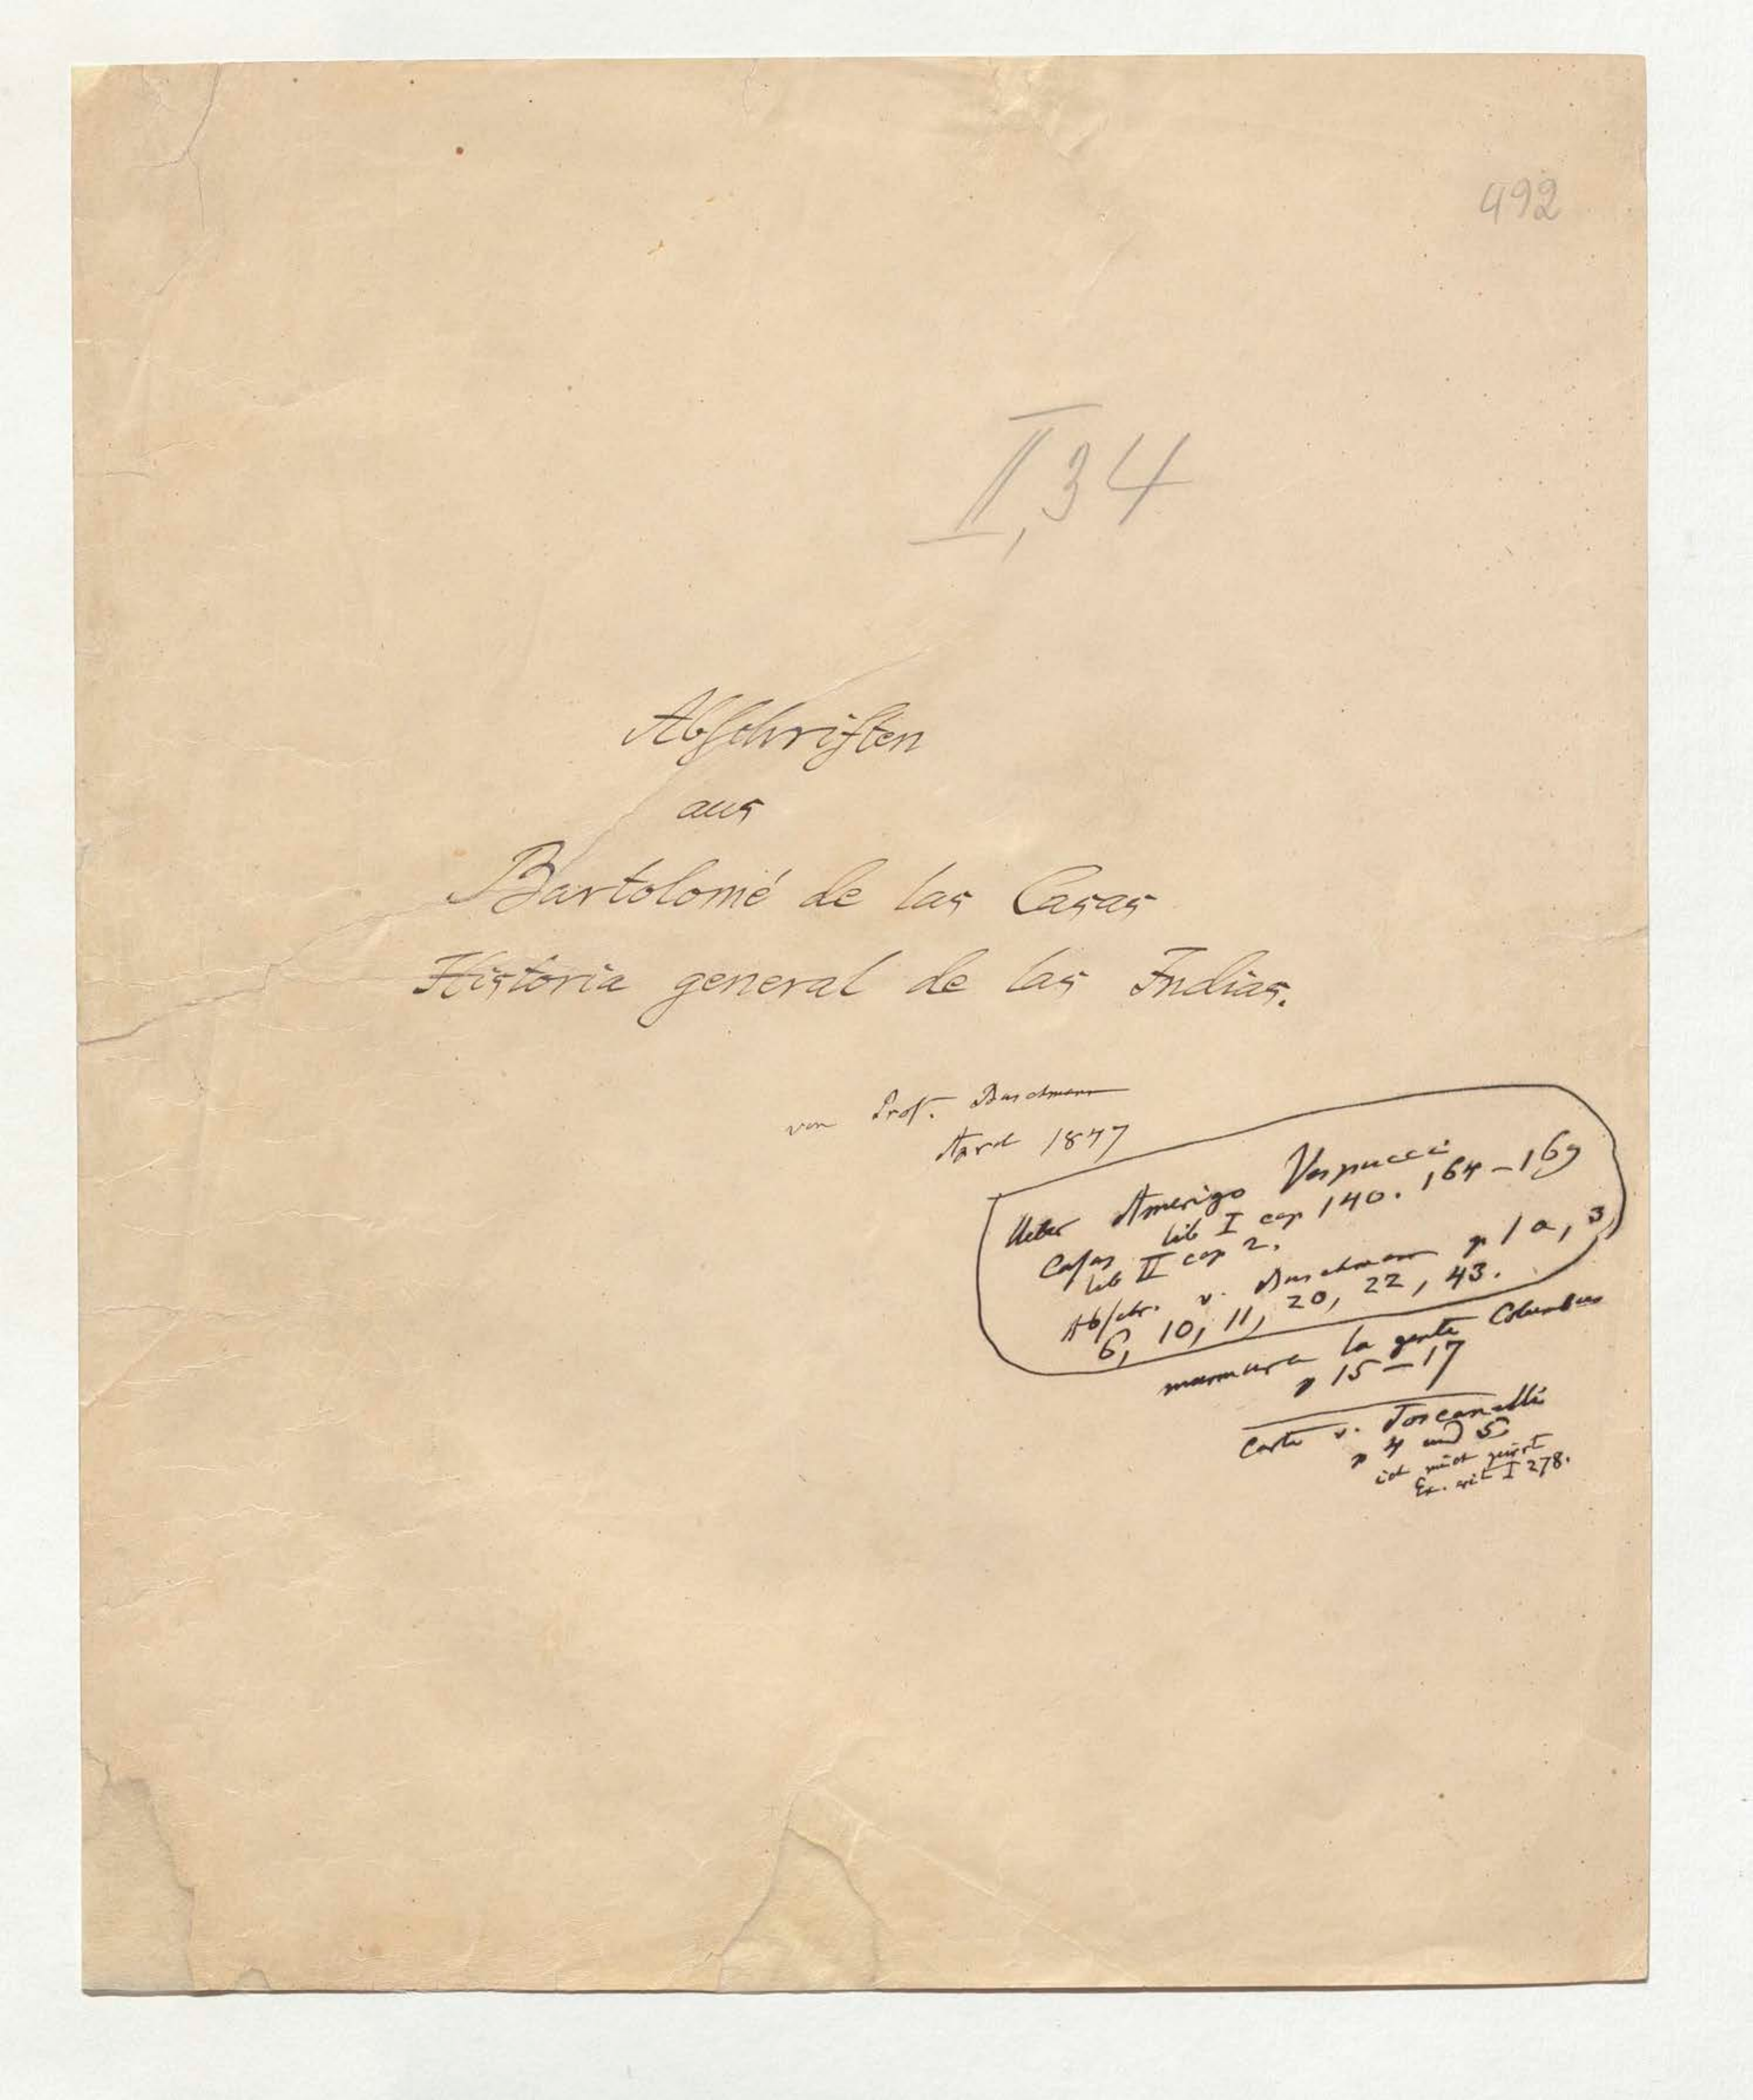 492
II, 34
Abschriften
aus
Bartolomé de las Casas
Historia general de las Indias.
von Prof. Buschmann
April 1847
Ueber Amerigo Vespucci
Casas lib I cap 140. 164–169
lib II cap 2.
Abschr. v. Buschmann p 1a, 3,
6, 10, 11, 20, 22, 43.
murmura la gente Columbus
p 15–17
Carte v. Toscanelli
p 4 und 5
ich nicht
Ex. crit I 278.